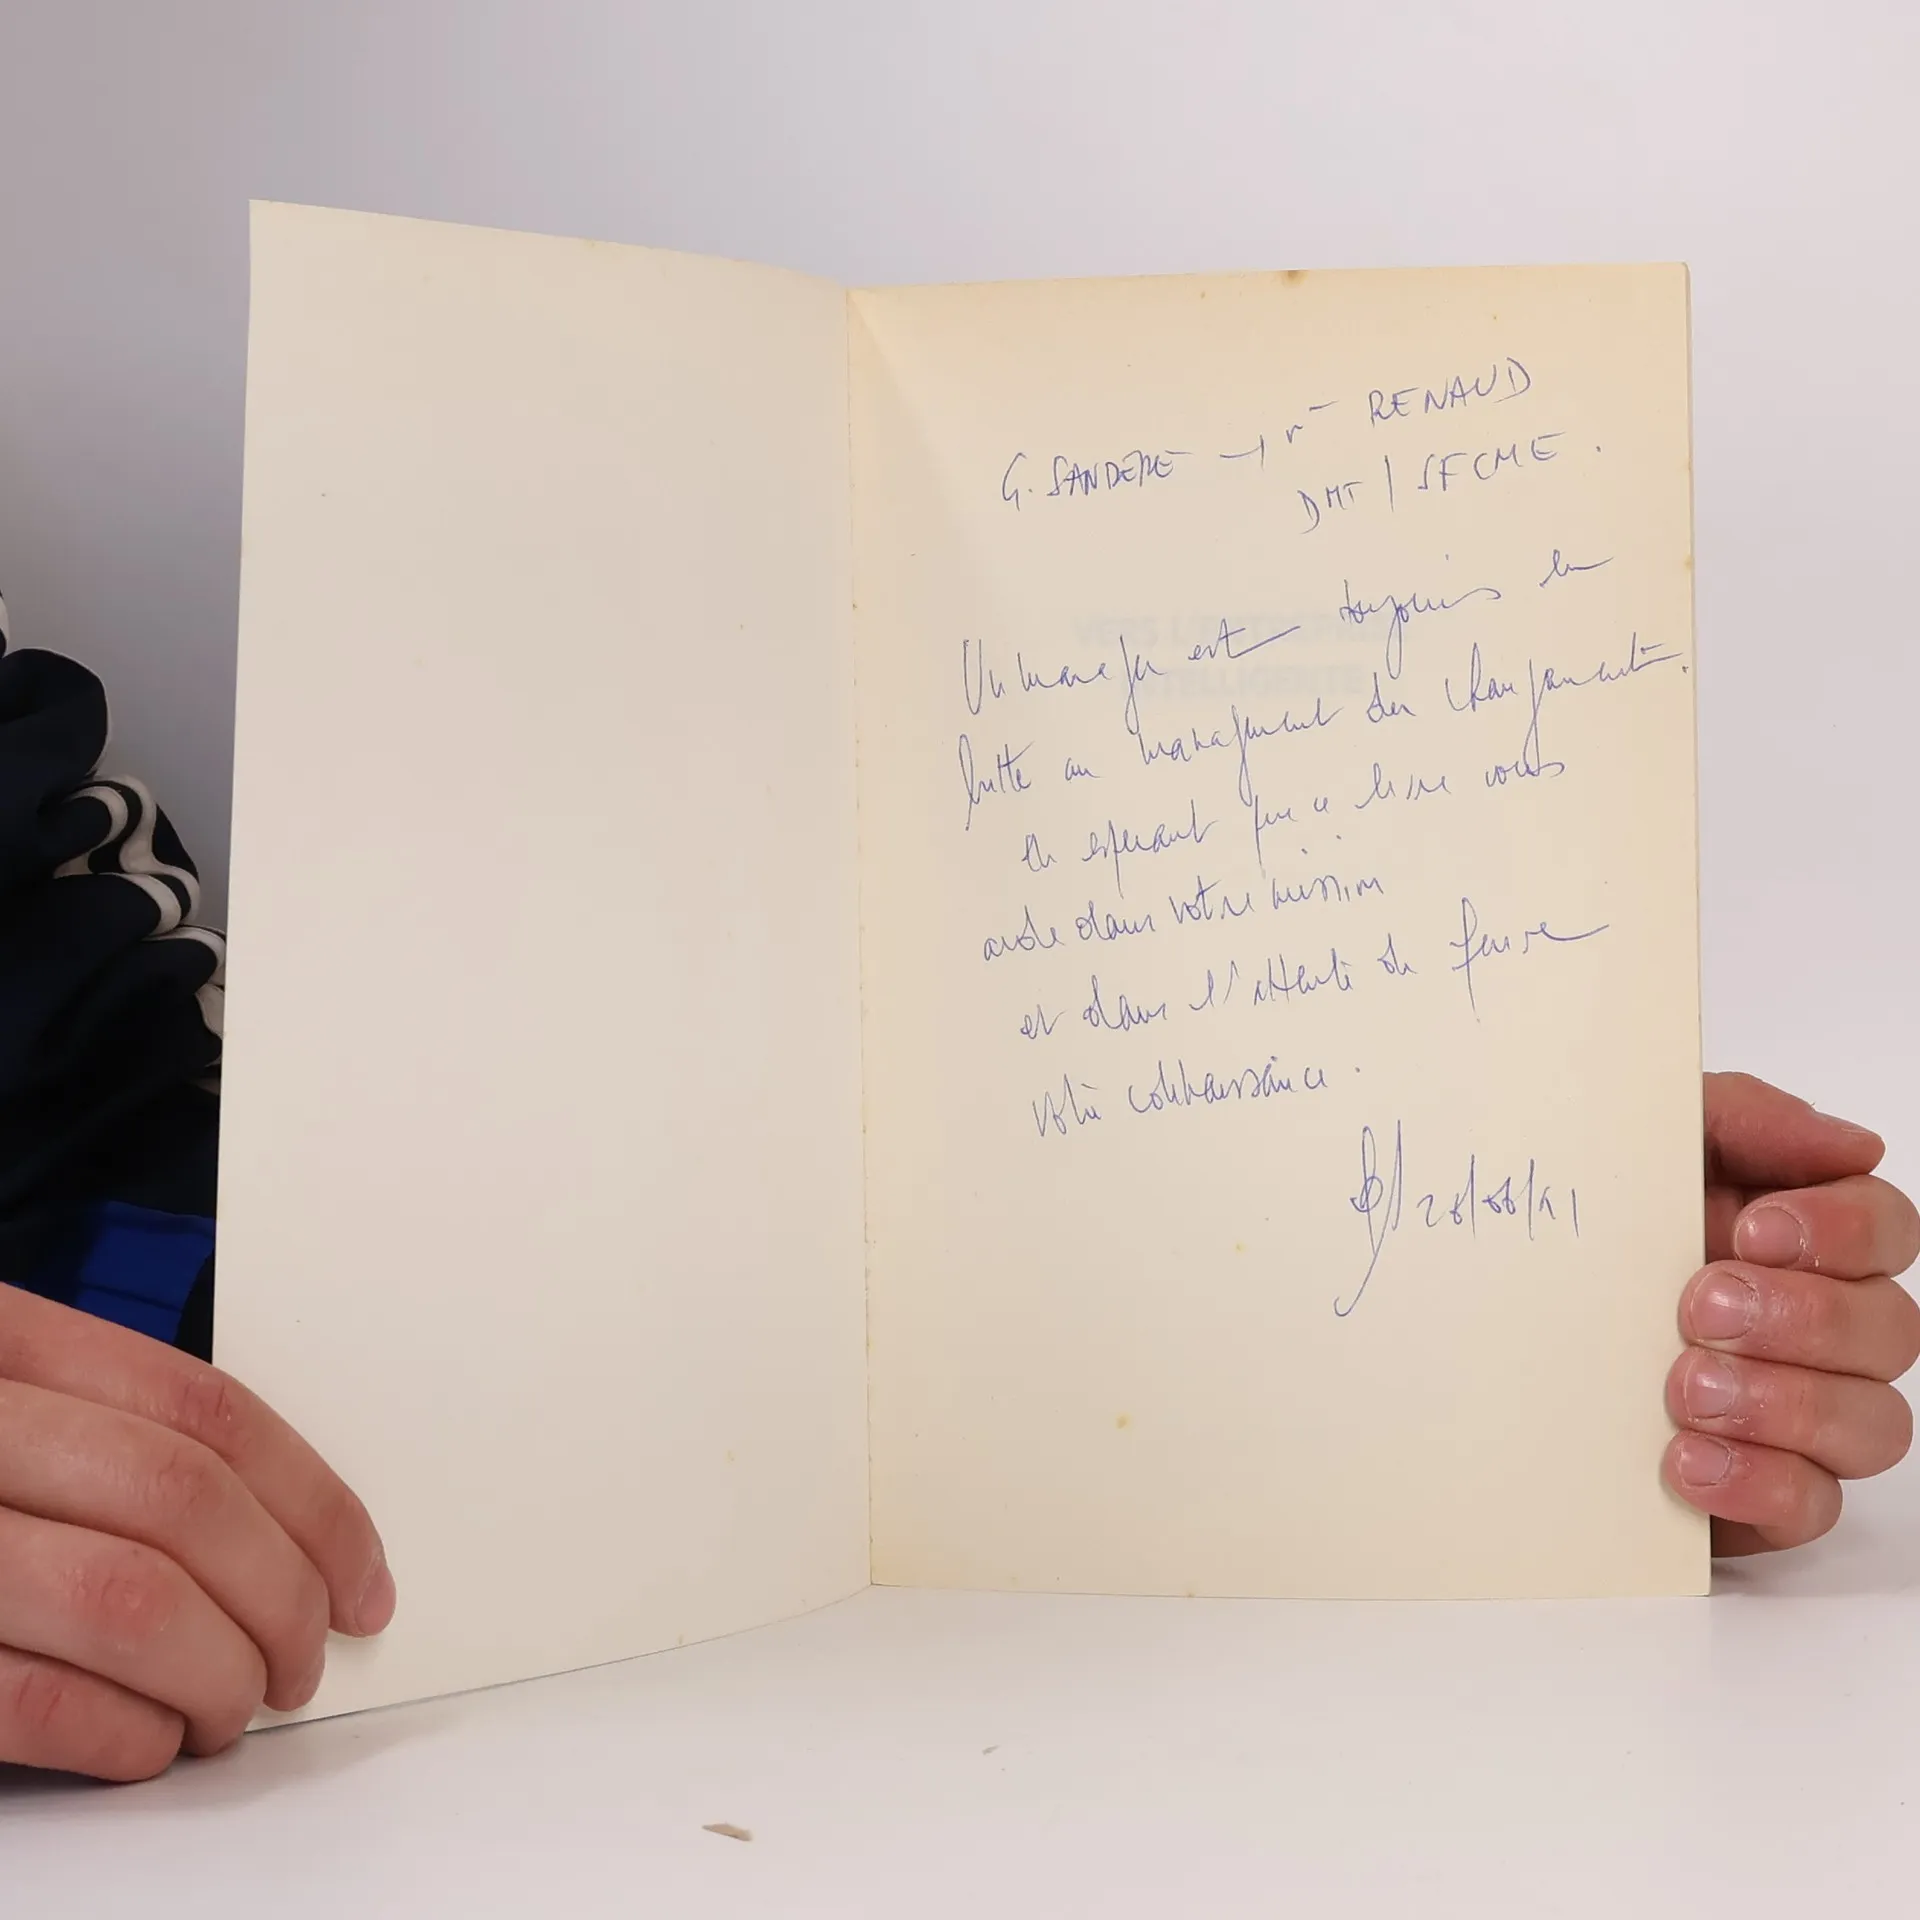 G. SANDERE → Mr RENAUD
DMT / SFCME.
Un manager est toujours en
lutte au management des changements.
En espérant que ce livre vous
aide dans votre mission
et dans l'attente de faire
votre connaissance.
26/06/91
VERS L'ENTREPRISE
INTELLIGENTE